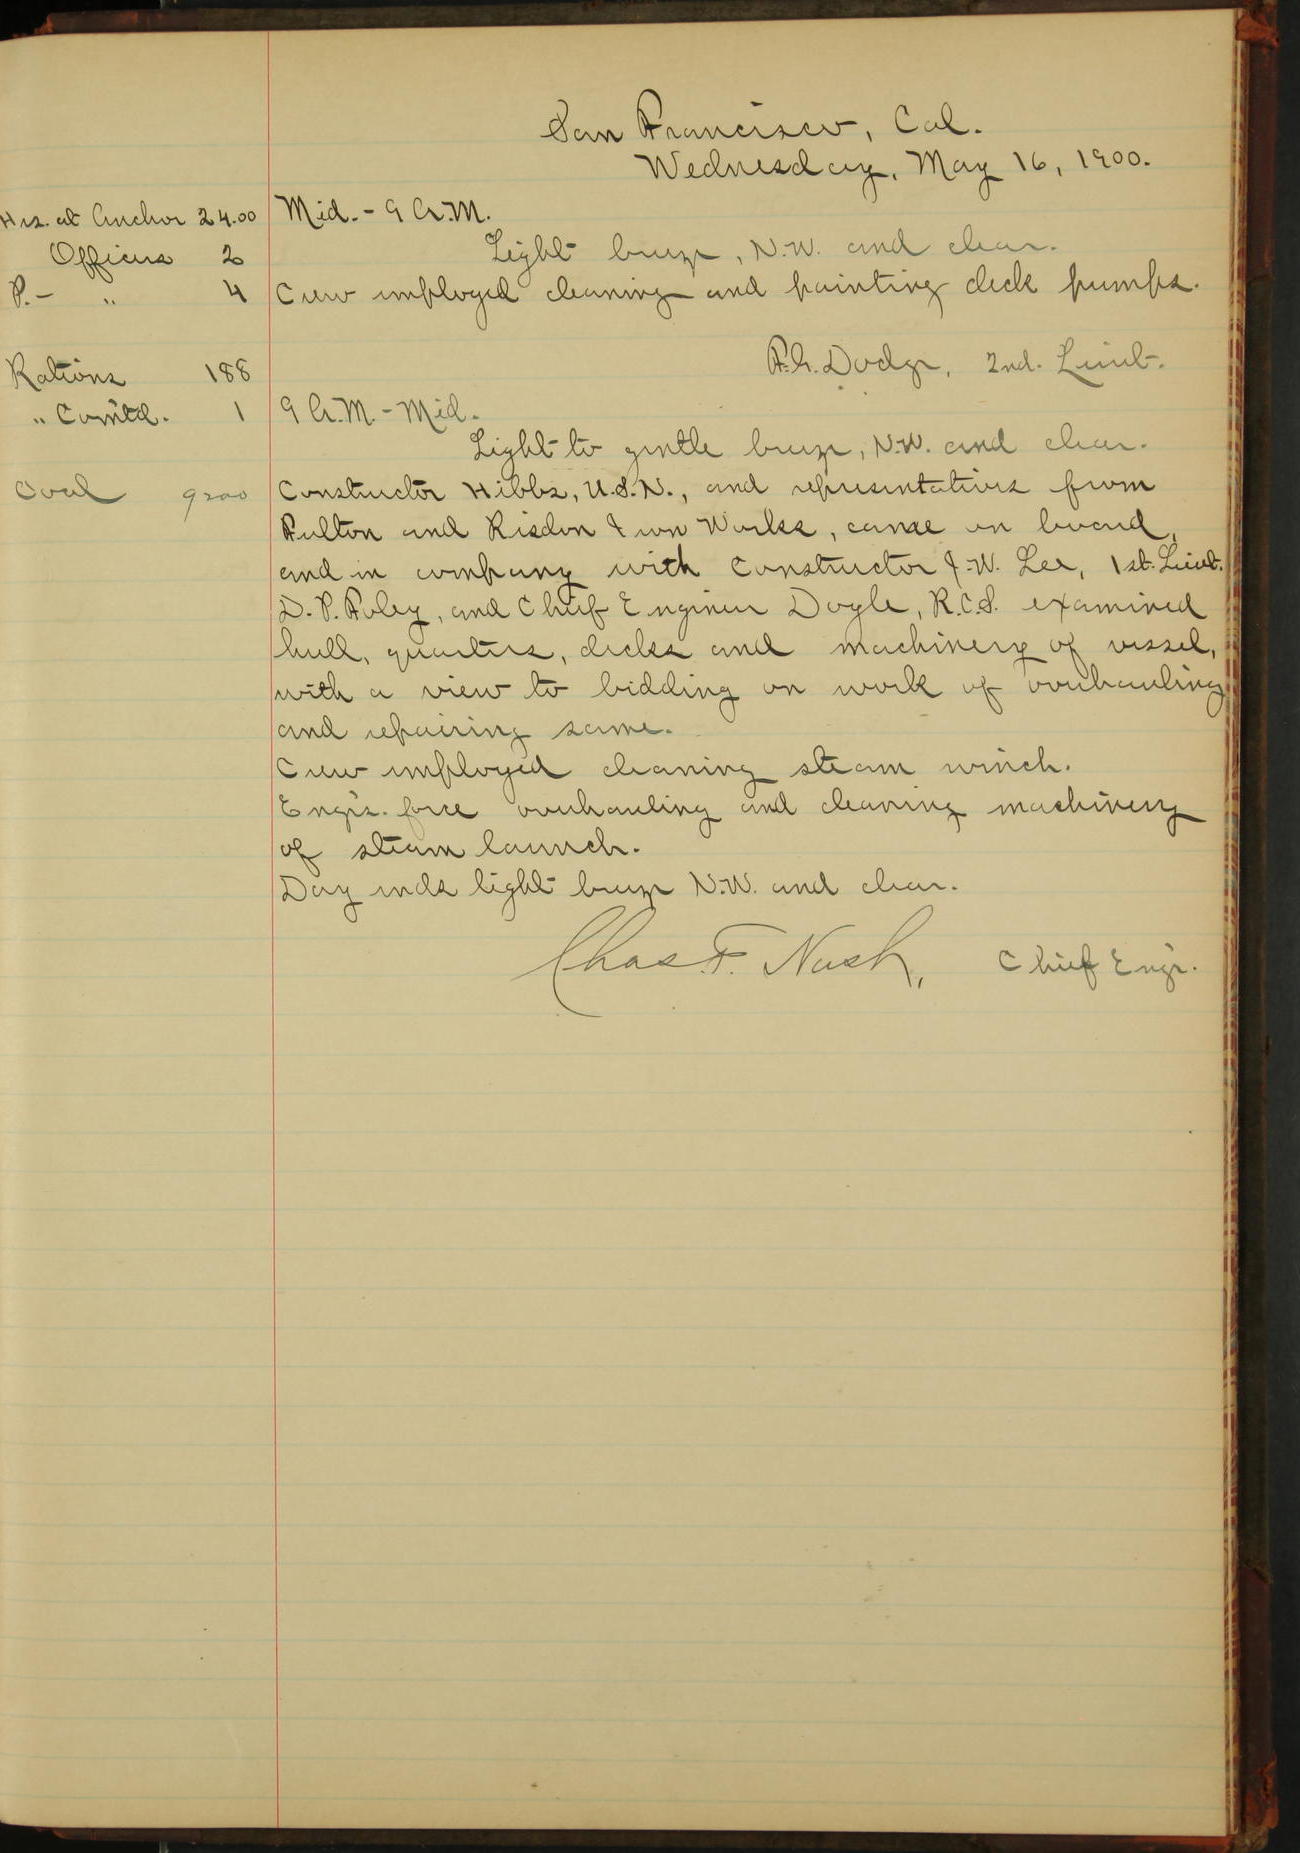 San Francisco, Cal.
Wednesday, May 16, 1900.
Hrs. at Anchor 24.00
Officers 2
P.- " 4
Rations 188
" Com'td. 1
Coal 9200
Mid. - 9 A.M.
Light breeze, N.W. and clear.
Crew employed cleaning and painting deck pumps.
F.G. Dodge, 2nd. Lieut.
9 A.M. - Mid.
Light to gentle breeze, N.W. and clear.
Constructor Hibbs, U.S.N., and representatives from
Fulton and Risdon Iron Works, came on board,
and in company with Constructor J.W. Lee, 1st. Lieut.
D.P. Foley, and Chief Engineer Doyle, R.C.S. examined
hull, quarters, decks and machinery of vessel,
with a view to bidding on work of overhauling
and repairing same.
Crew employed cleaning steam winch.
Engr's. force overhauling and cleaning machinery
of steam launch.
Day ends light breeze N.W. and clear.
Chas. F. Nash, Chief Engr.